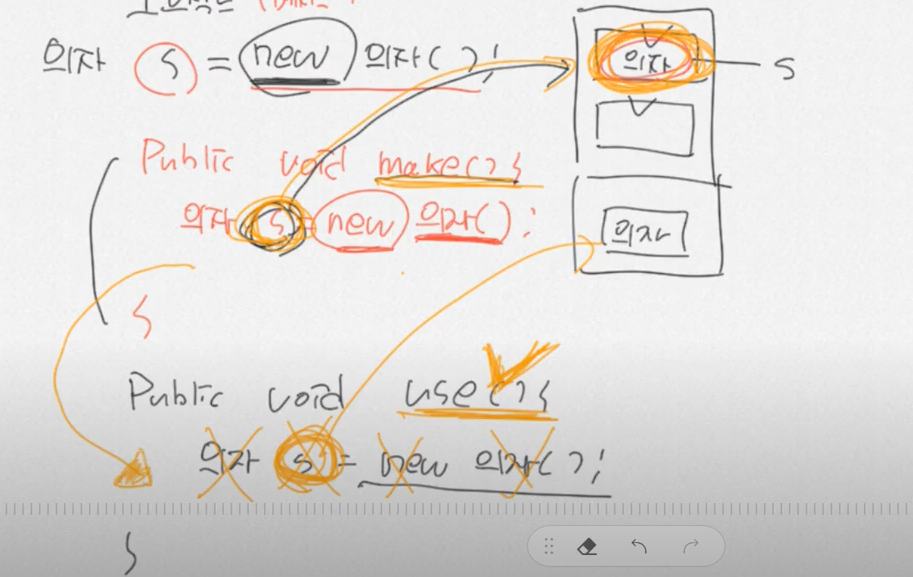 의자 s = new 의자();
의자 s
Public void make(){
의자 s = new 의자();
의자
}
Public void use(){
의자 s = new 의자();
}